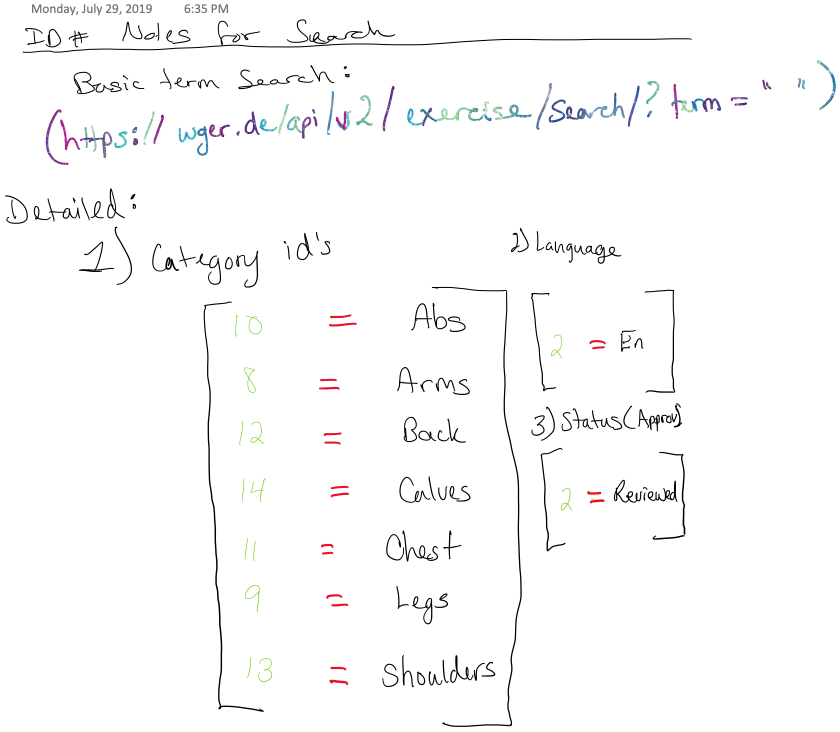 Monday, July 29, 2019 6:35 PM
ID# Notes for Search
Basic term Search:
(https://wger.de/api/v2/exercise/search/?term=" ")
Detailed:
1) Category id's
10 = Abs
8 = Arms
12 = Back
14 = Calves
11 = Chest
9 = Legs
13 = Shoulders
2) Language
2 = En
3) Status (Approv)
2 = Reviewed